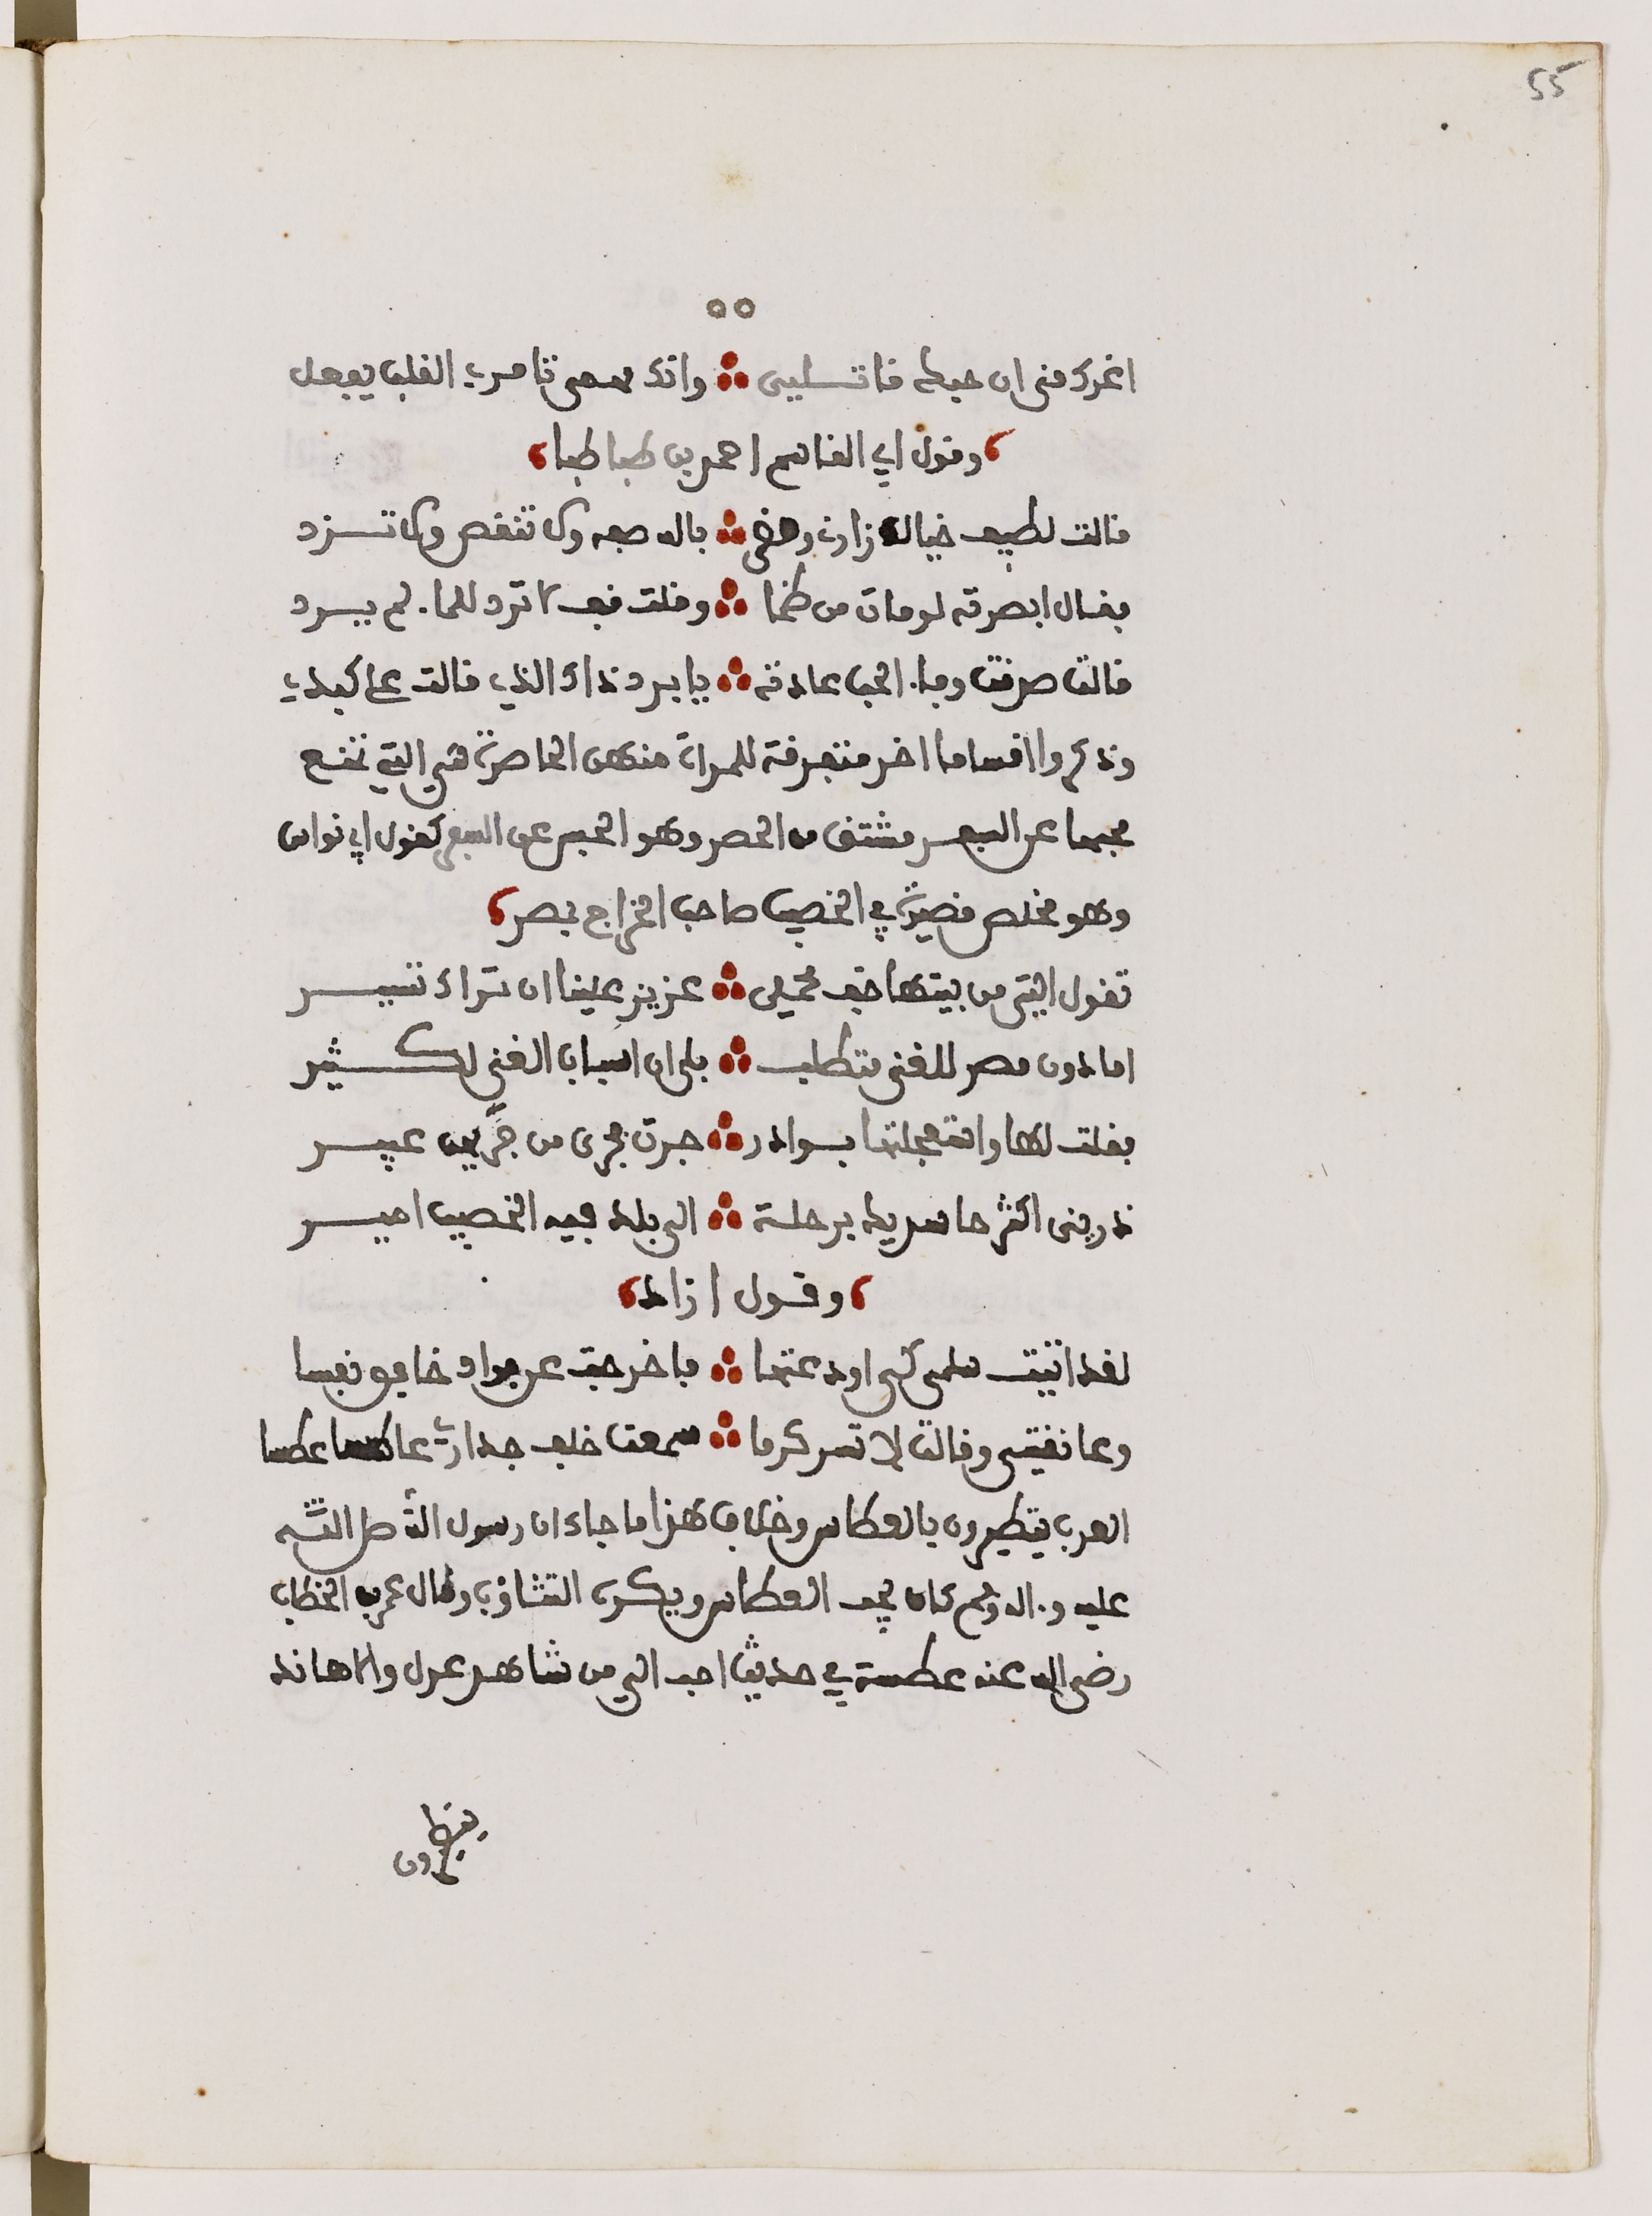 55
٥٥
اغرك منى ان حبك قاتلي وانك مهمى تامرى القلب يفعل
وقول ابي القاسم احمد بن طباطبا
قالت لطيف خيال زارنى ومضى بالله صفه ولا تنقص ولا تزد
فقال ابصرته لو مات من ظما وقلت قف لا ترد للما. لم يرد
قالت صدقت وفا. الحب عادته يا برد ذاك الذي قالت على كبدي
وذكروا اقساما اخر متفرقة للمراة منهن الحاصرة هي التي تمنع
محبها عن السفر مشتق من الحصر وهو الحبس عن السفر كقول ابي نواس
وهو مخلص قصيدة في الخصيب صاحب الخراج بمصر
تقول التي من بيتها خف محملي عزيز علينا ان نراك تسير
اما دون مصر للغنى متطلب بلى ان اسباب الغنى لكثير
فقلت لها واستعجلتها بوادر جرت فجرى من جريهن عبير
ذريني اكثر حاسديك برحلة الى بلد فيه الخصيب امير
وقول ازاد
لقد اتيت سلمى كي اودعتها فاخرجت عن فواد خافق نفسا
وعانقتنى وقالت لا تسر كرما سمعت خلف جدارى عاطسا عطسا
العرب يتطيرون بالعطاس وخلاف هذا ما جاء ان رسول الله صلى الله
عليه و.اله وسلم كان يحب العطاس ويكره التثاوب وقال عمر بن الخطاب
رضى الله عنه عطسة في حديث احب الي من شاهد عدل والاهاند
يفطرون